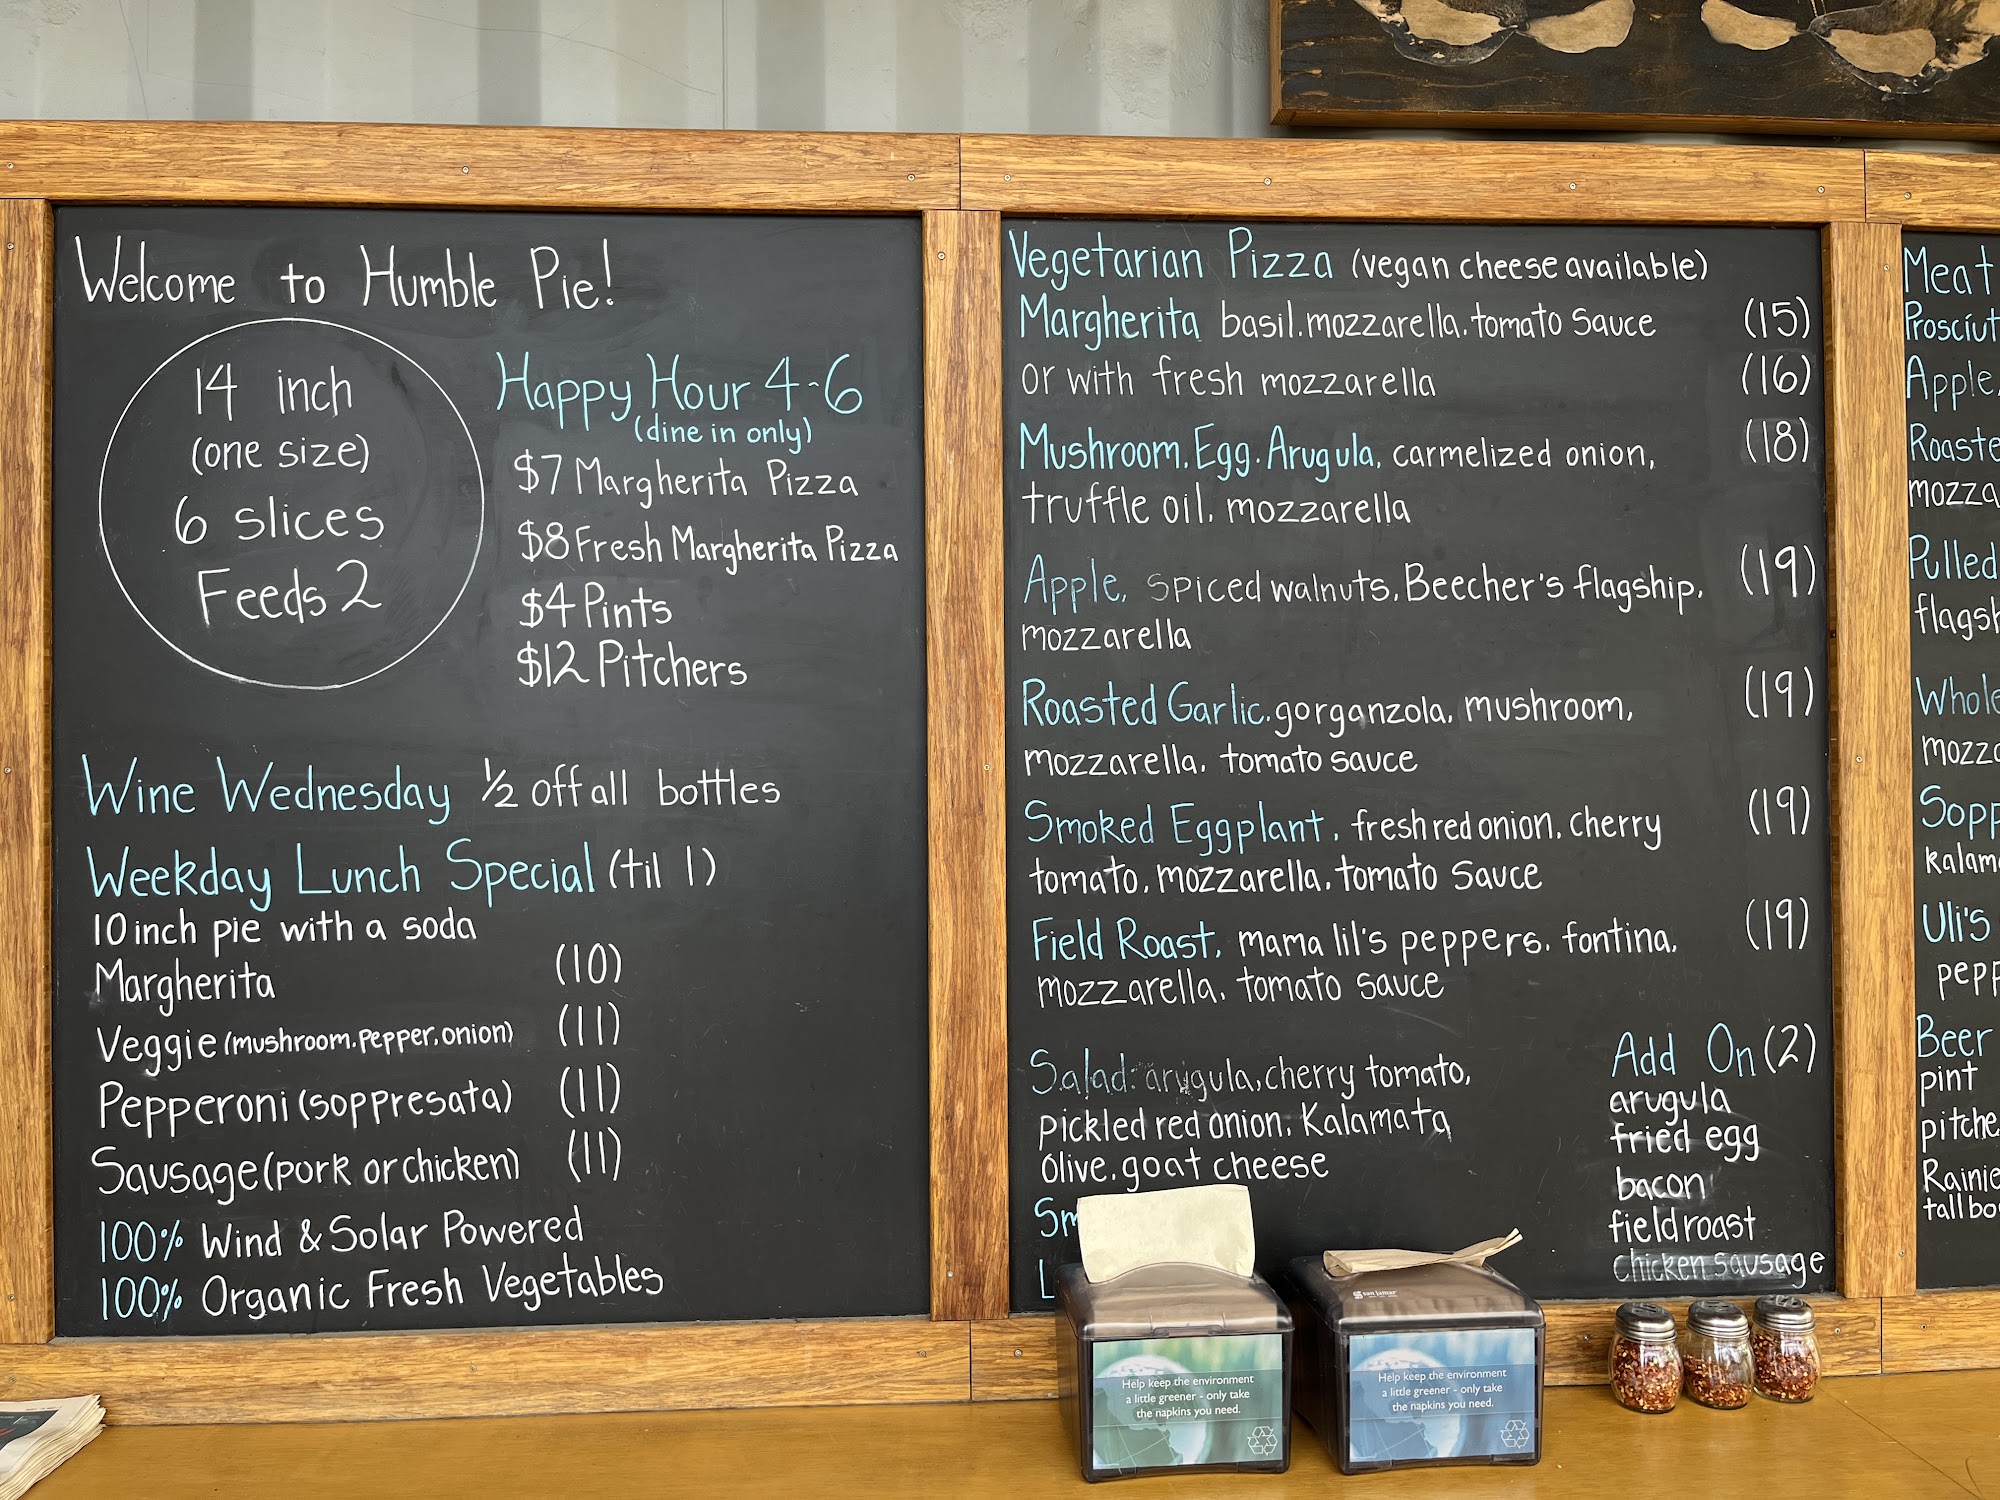 Welcome to Humble Pie!
14 inch
(one size)
6 slices
Feeds 2
Happy Hour 4-6
(dine in only)
$7 Margherita Pizza
$8 Fresh Margherita Pizza
$4 Pints
$12 Pitchers
Wine Wednesday ½ off all bottles
Weekday Lunch Special (til 1)
10 inch pie with a soda
Margherita (10)
Veggie (mushroom, pepper, onion) (11)
Pepperoni (soppresata) (11)
Sausage (pork or chicken) (11)
100% Wind & Solar Powered
100% Organic Fresh Vegetables
Vegetarian Pizza (vegan cheese available)
Margherita basil, mozzarella, tomato sauce (15)
or with fresh mozzarella (16)
Mushroom, Egg, Arugula, carmelized onion, (18)
truffle oil, mozzarella
Apple, spiced walnuts, Beecher's flagship, (19)
mozzarella
Roasted Garlic, gorganzola, mushroom, (19)
mozzarella, tomato sauce
Smoked Eggplant, fresh red onion, cherry (19)
tomato, mozzarella, tomato sauce
Field Roast, mama lil's peppers, fontina, (19)
mozzarella, tomato sauce
Salad: arugula, cherry tomato,
pickled red onion, Kalamata
olive, goat cheese
Sm
L
Add On (2)
arugula
fried egg
bacon
field roast
chicken sausage
Meat
Prosciut
Apple,
Roaste
mozza
Pulled
flagsh
Whole
mozza
Sopp
kalam
Uli's
pepp
Beer
pint
pitche
Rainie
tall bo
san jamar
Help keep the environment
a little greener - only take
the napkins you need.
Help keep the environment
a little greener - only take
the napkins you need.